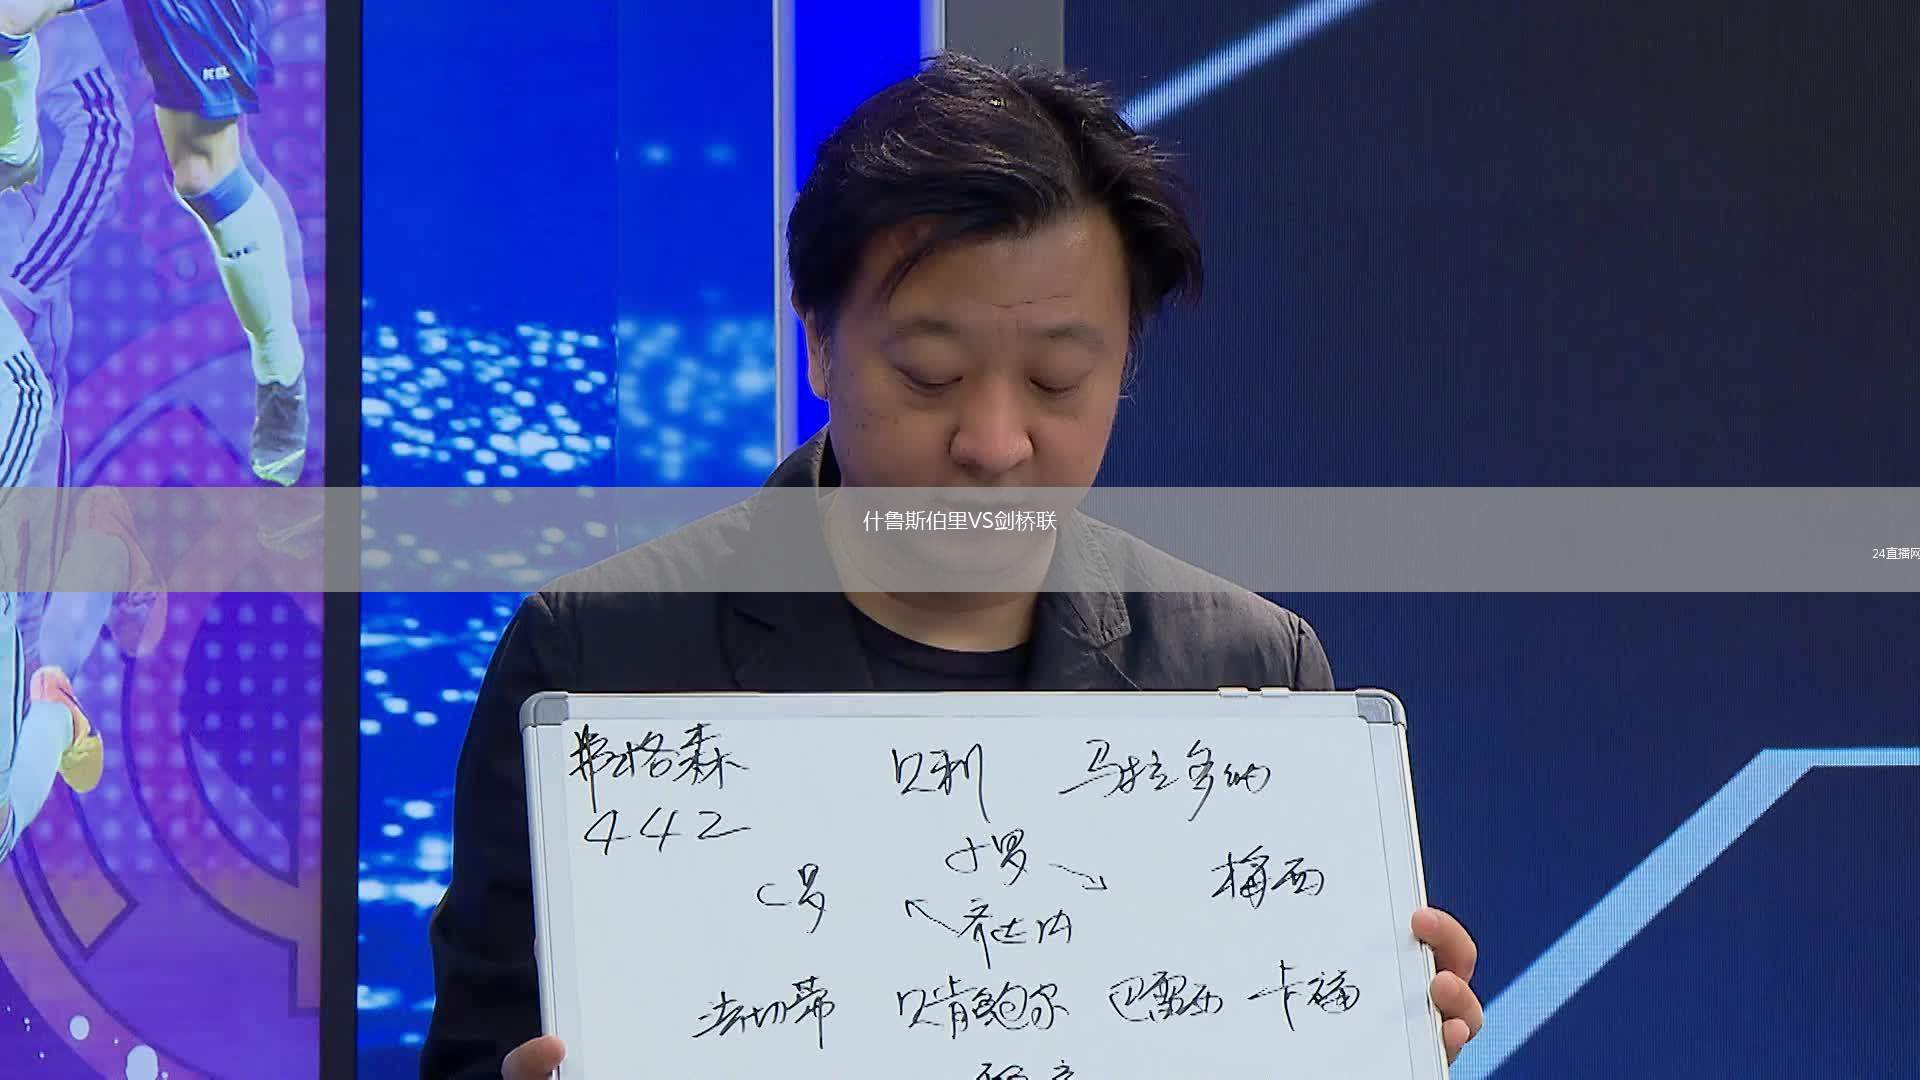 KE
什鲁斯伯里VS剑桥联
24直播网
弗格森 贝利 马拉多纳
442
C罗 小罗 梅西
齐达内
法切蒂 贝肯鲍尔 巴雷西 卡福